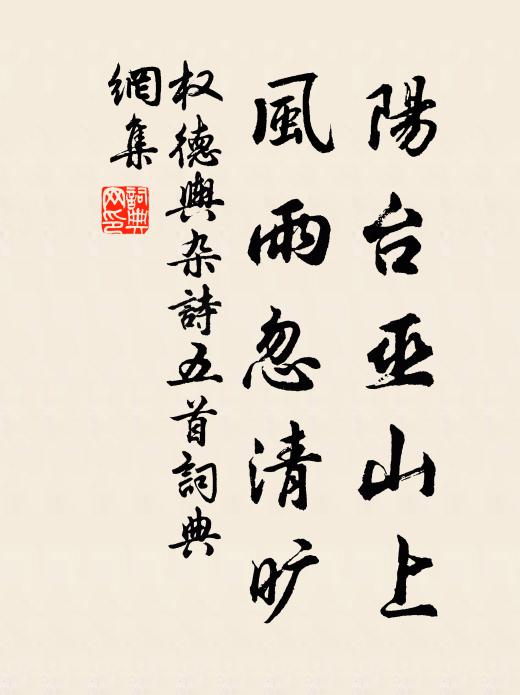 陽台巫山上
風雨忽清旷
权德輿杂詩五首詞典
網集
詞典
网印